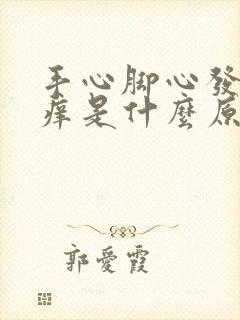 手心脚心發
痒是什麼原
郭愛霞